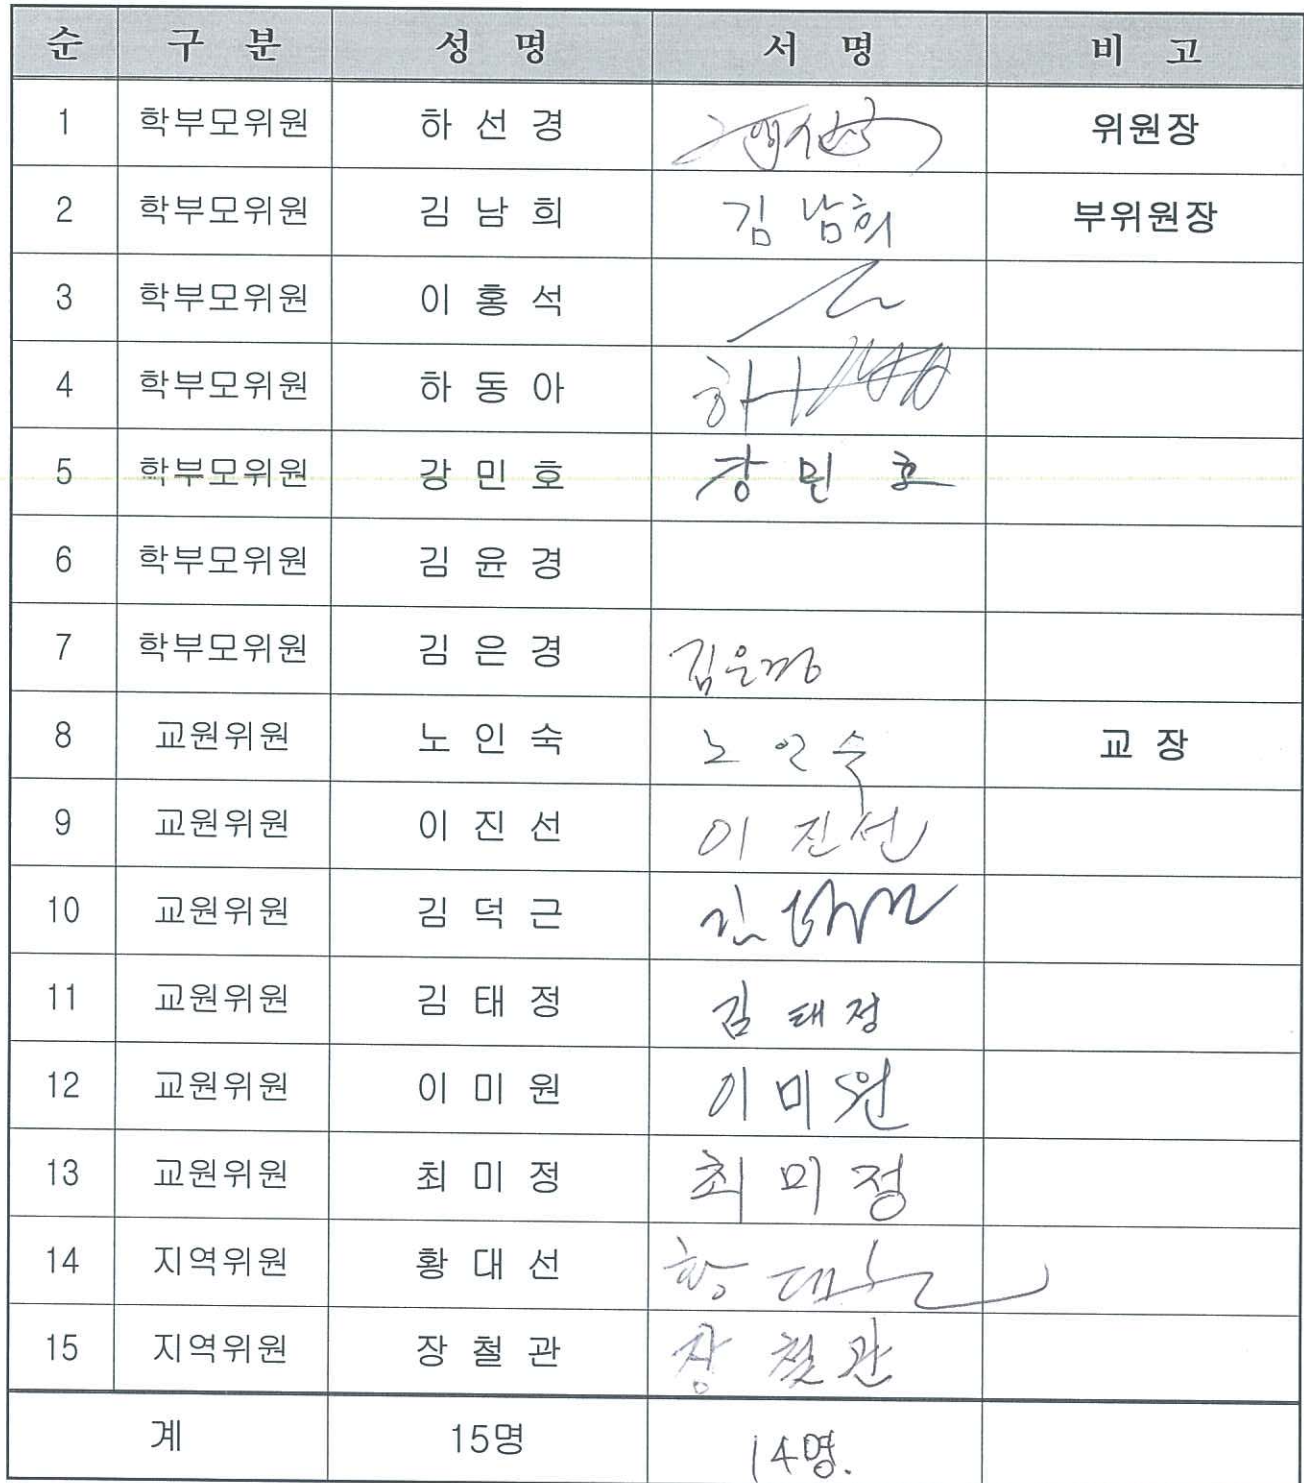 순 구 분 성 명 서 명 비 고
1 학부모위원 하 선 경 위원장
2 학부모위원 김 남 희 김 남희 부위원장
3 학부모위원 이 홍 석
4 학부모위원 하 동 아 하
5 학부모위원 강 민 호 강 민 호
6 학부모위원 김 윤 경
7 학부모위원 김 은 경 김은경
8 교원위원 노 인 숙 노 인 숙 교 장
9 교원위원 이 진 선 이 진선
10 교원위원 김 덕 근 김
11 교원위원 김 태 정 김 태 정
12 교원위원 이 미 원 이 미 원
13 교원위원 최 미 정 최 미 정
14 지역위원 황 대 선 황 대선
15 지역위원 장 철 관 장 철 관
계 15명 14명.